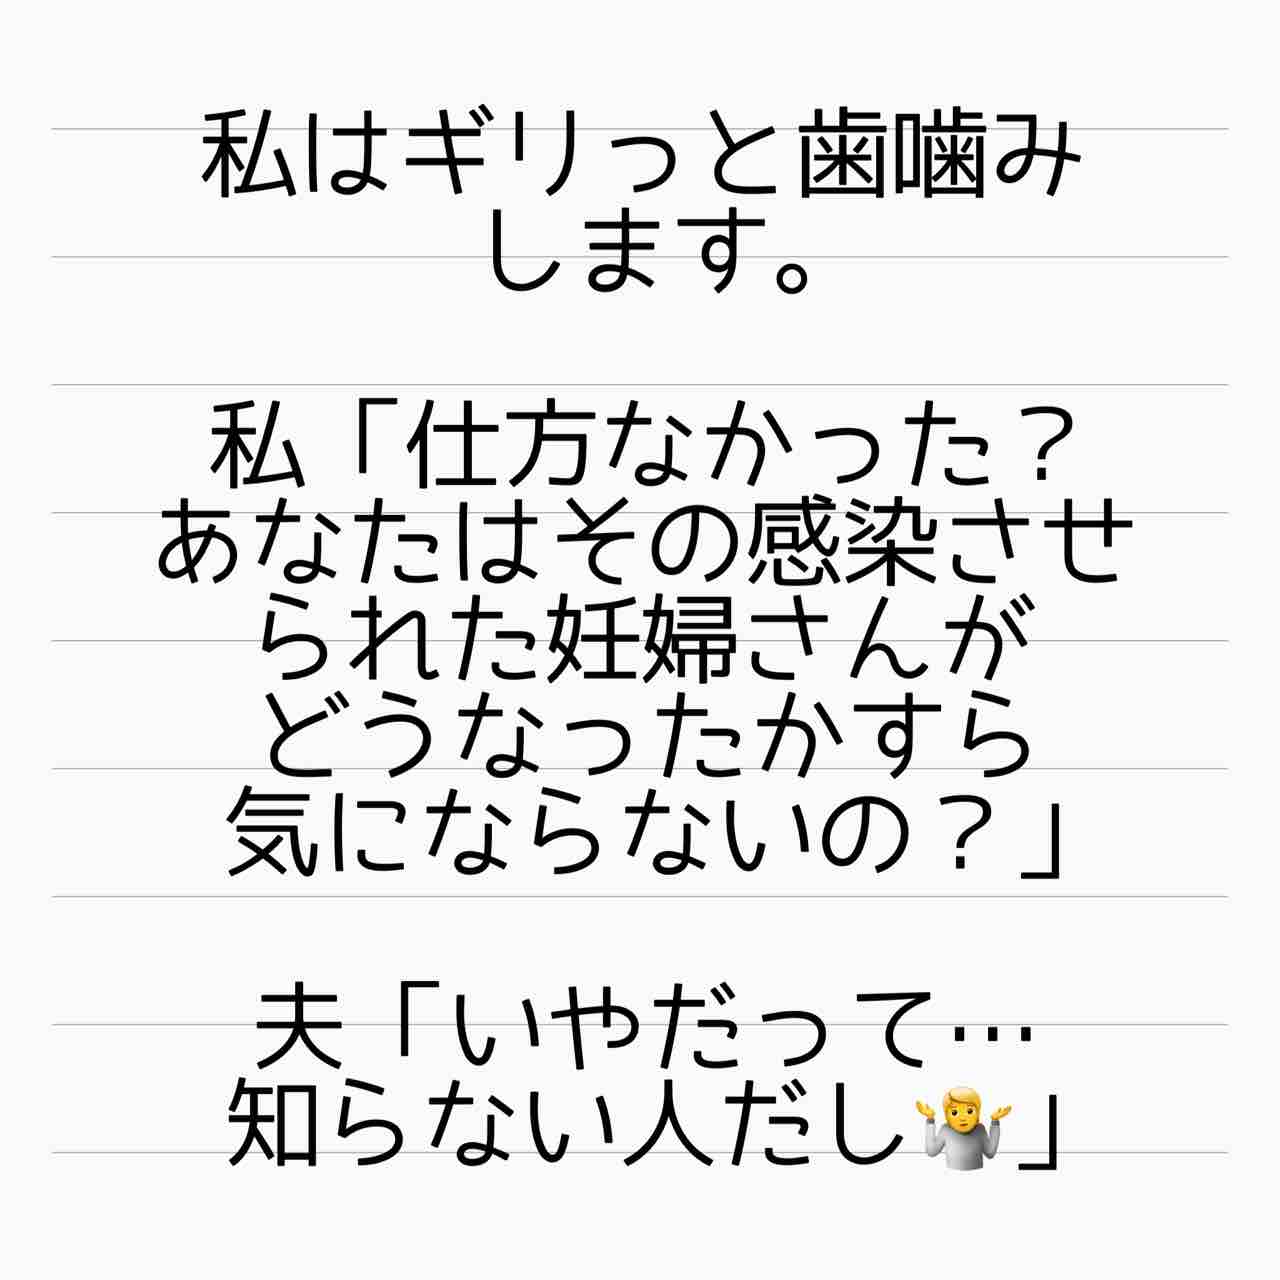 私はギリっと歯噛み
します。
私「仕方なかった？
あなたはその感染させ
られた妊婦さんが
どうなったかすら
気にならないの？」
夫「いやだって…
知らない人だし🤷」